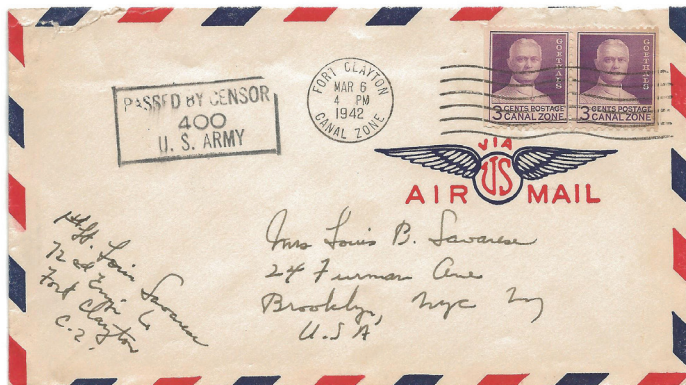 PASSED BY CENSOR
400
U. S. ARMY
FORT CLAYTON
MAR 6
4 PM
1942
CANAL ZONE
GOETHALS
3 CENTS POSTAGE
CANAL ZONE
GOETHALS
3 CENTS POSTAGE
CANAL ZONE
VIA
US
AIR MAIL
1st Lt. Louis Savarese
72nd Engr Co
Fort Clayton
C. Z.
Mrs Louis B. Savarese
24 Furman Ave
Brooklyn, NYC NY
U.S.A